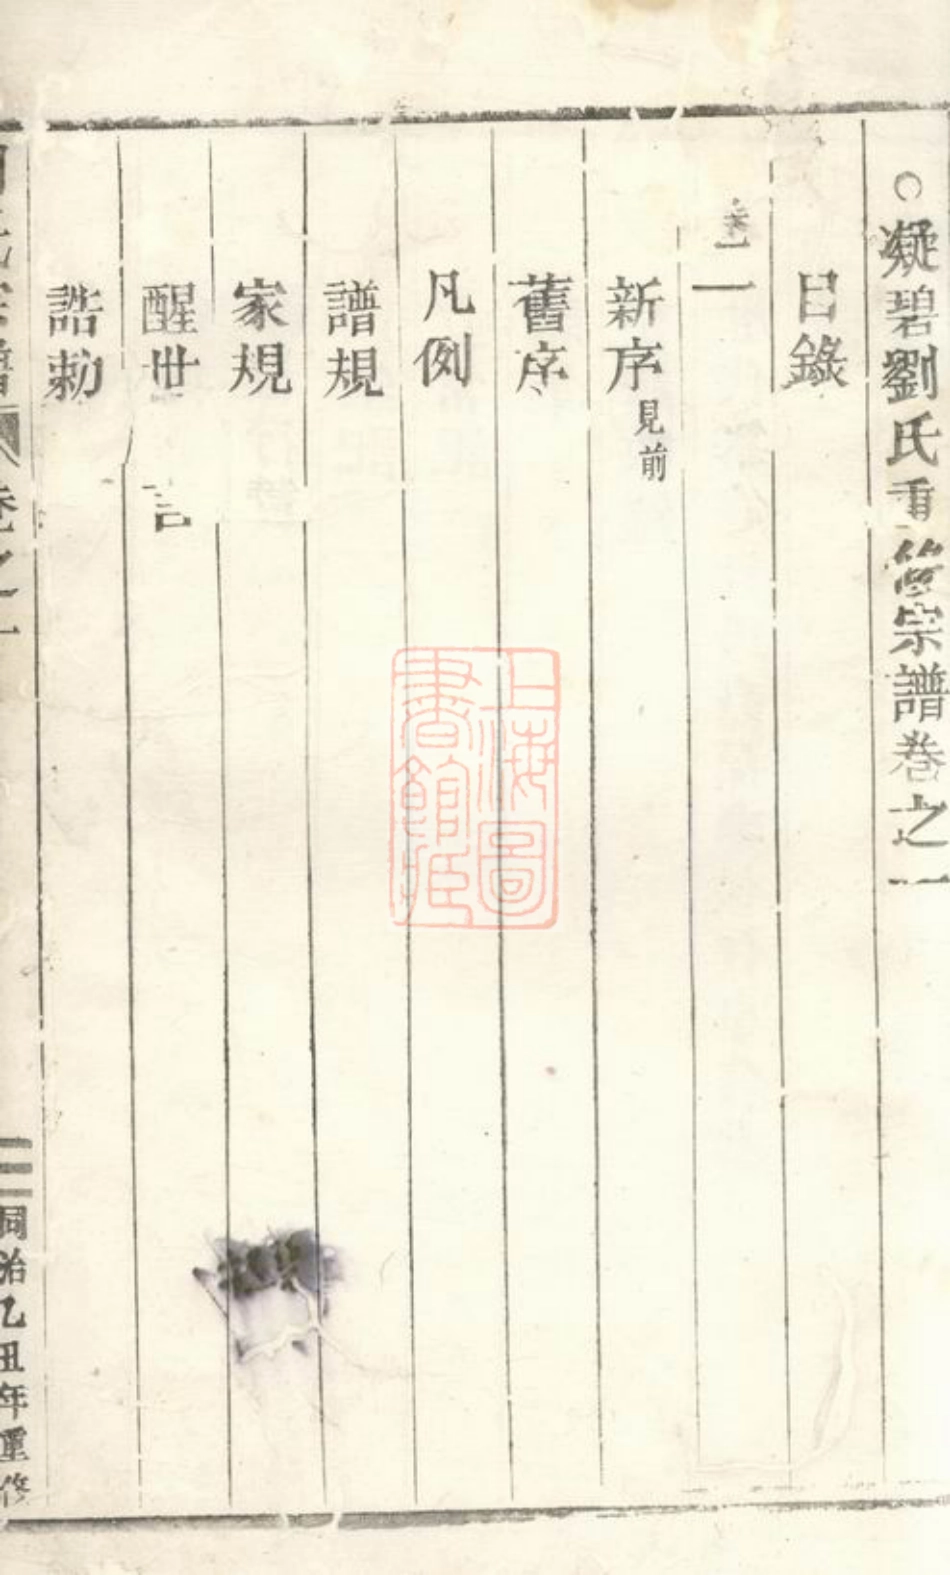 凝碧劉氏重脩宗譜卷之一
目錄
卷一
新序見前
舊序
凡例
譜規
家規
醒世言
誥勅
劉氏宗譜 卷之一 同治乙丑年重修
上海圖書館藏